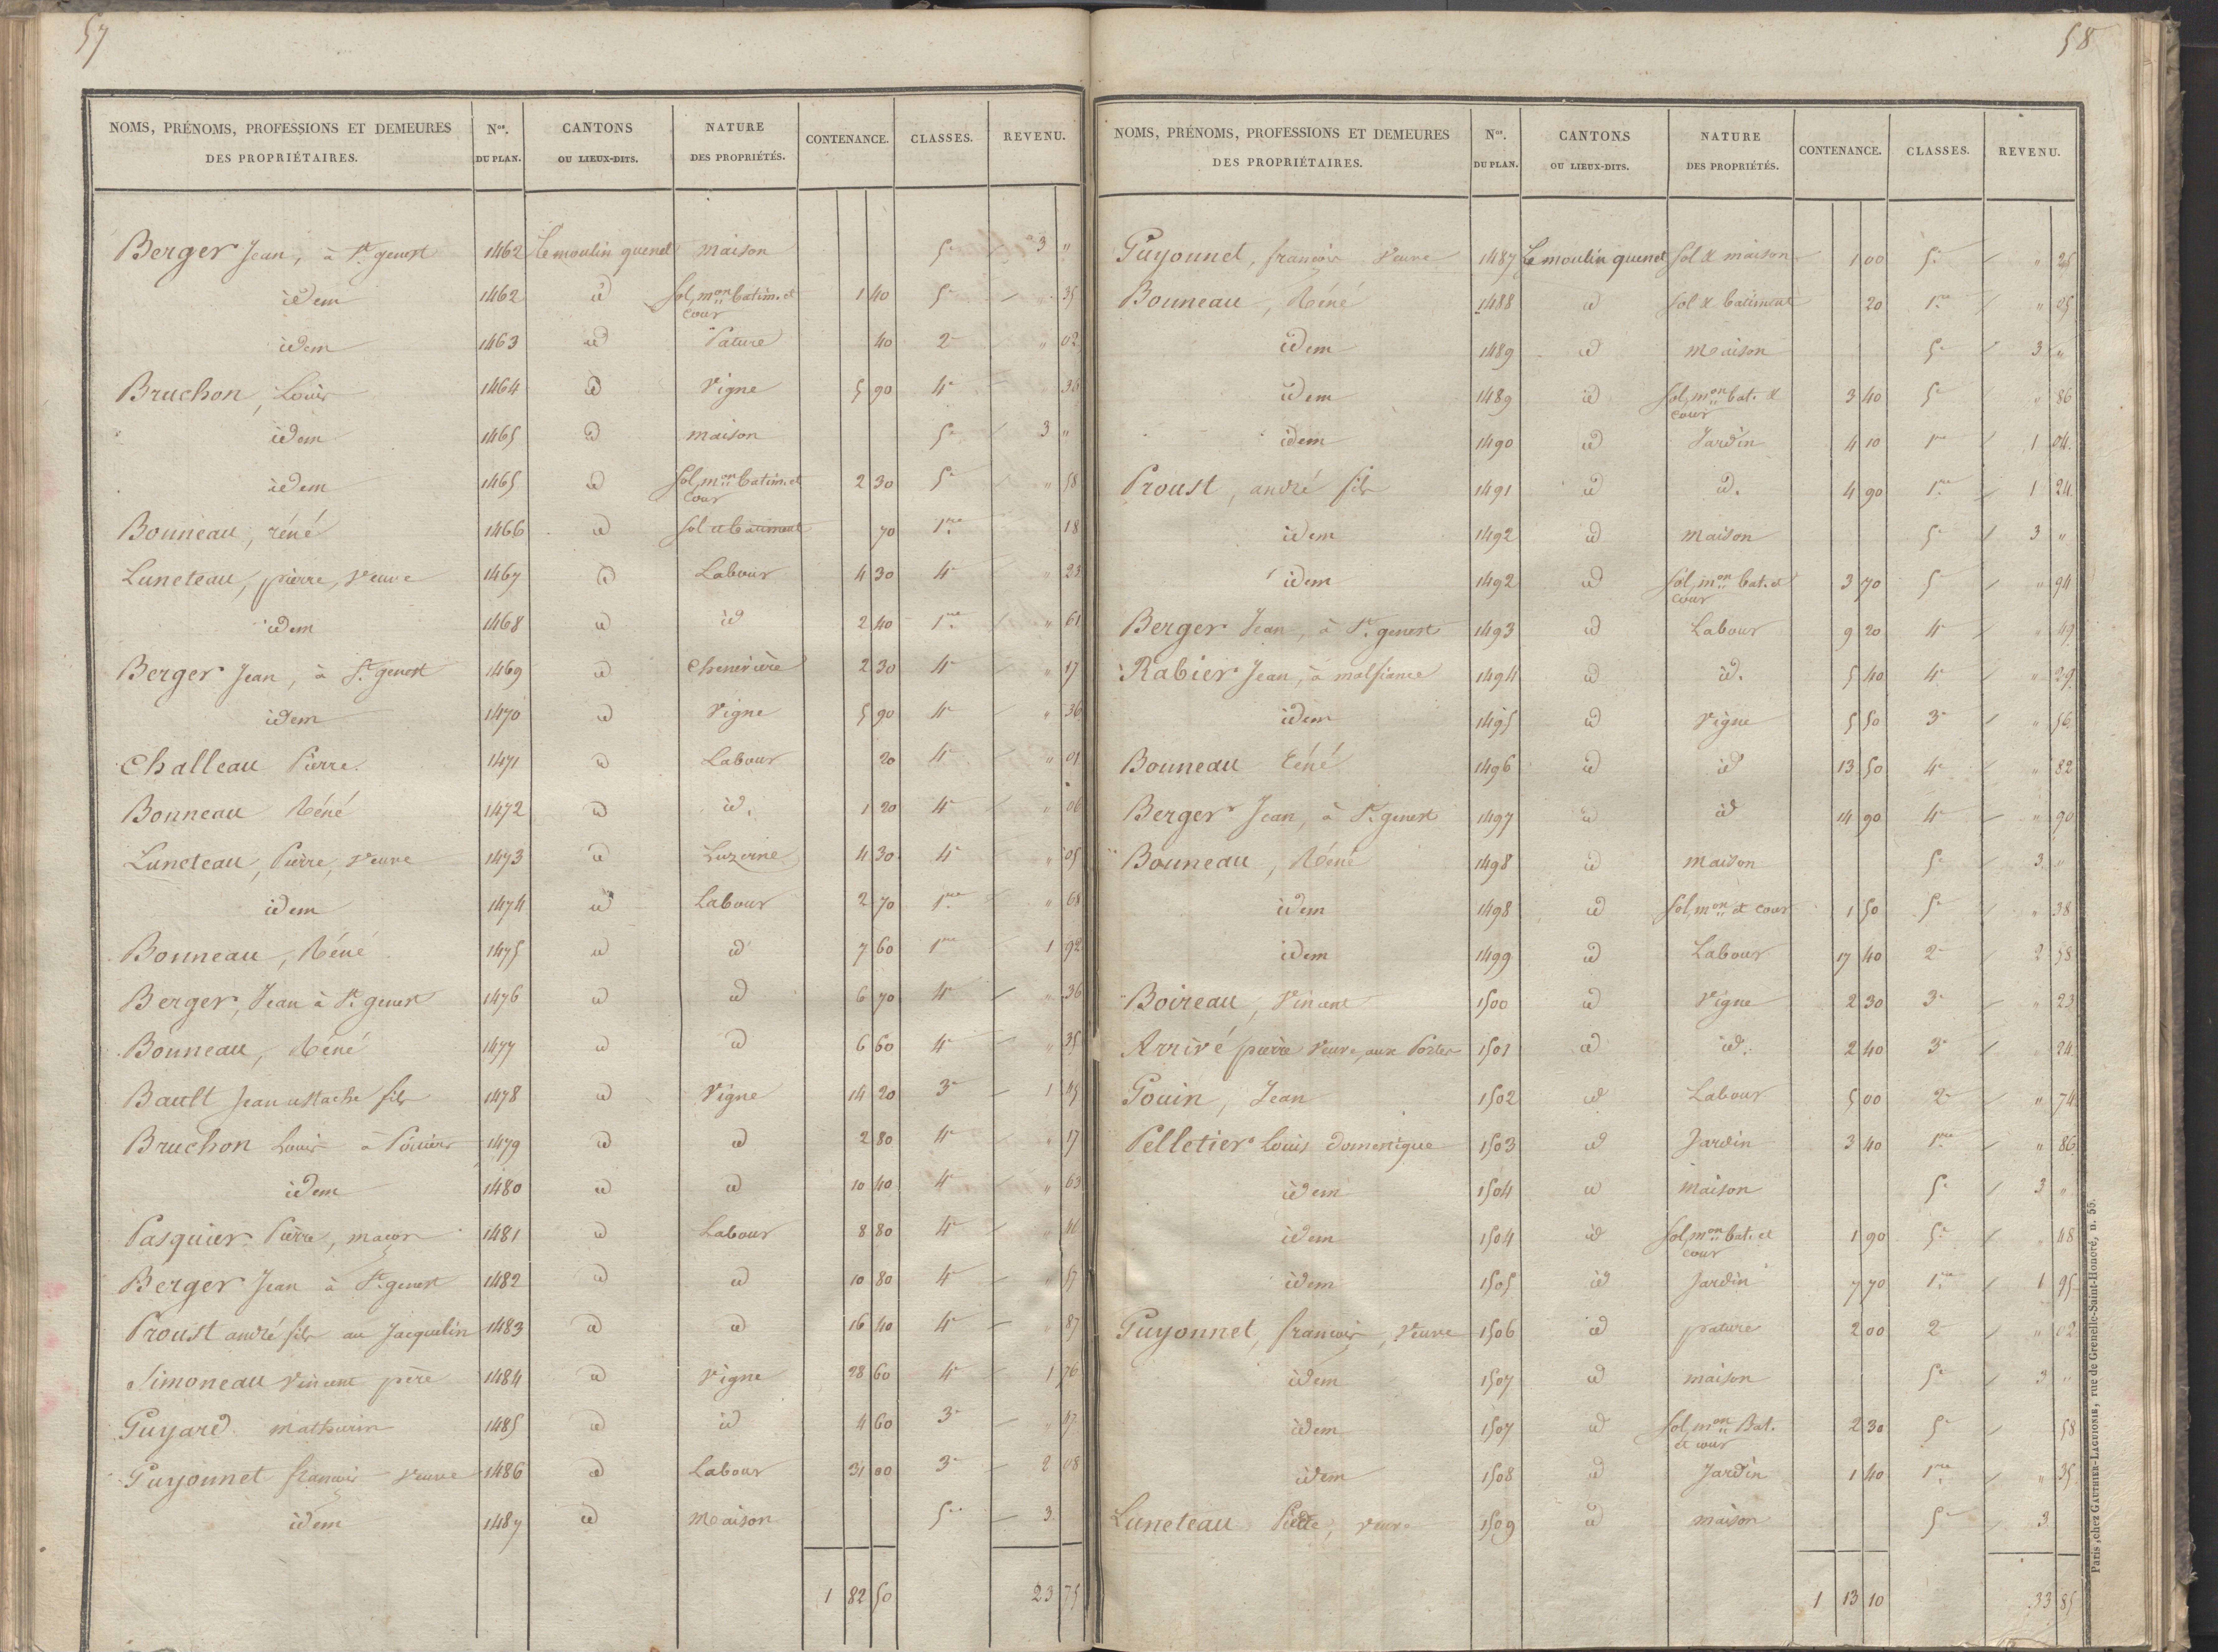 57
NOMS, PRÉNOMS, PROFESSIONS ET DEMEURES DES PROPRIÉTAIRES. Nos. DU PLAN. CANTONS OU LIEUX-DITS. NATURE DES PROPRIÉTÉS. CONTENANCE. CLASSES. REVENU.
Berger Jean, à St. genest 1462 Le moulin quenet maison 5e 3 "
idem 1462 id Sol, mon batim. et cour 1 40 5e " 35
idem 1463 id Pature 40 2e " 02
Bruchon, Louis 1464 id Vigne 5 90 4e 36
idem 1465 id maison 5e 3 "
idem 1465 id Sol, mon batim. et cour 2 30 5e " 58
Bonneau, réné 1466 id Sol et batiment 70 1re 18
Luneteau, pierre, Veuve 1467 id Labour 4 30 4e " 23
idem 1468 id id 2 40 1re " 61
Berger Jean, à St. genest 1469 id Chenevière 2 30 4e " 17
idem 1470 id Vigne 5 90 4e " 36
Challeau Pierre. 1471 id Labour 20 4e " 01
Bonneau Réné 1472 id id. 1 20 4e " 06
Luneteau, Pierre, Veuve 1473 id Luzerne 4 30 4e " 05
idem 1474 id Labour 2 70 1re " 68
Bonneau, Réné 1475 id id 7 60 1re 1 92
Berger, Jean à St. genest 1476 id id 6 70 4e " 36
Bonneau, Réné 1477 id id 6 60 4e " 35
Bault Jean ustache fils 1478 id Vigne 14 20 3e 1 45
Bruchon Louis à Poitiers 1479 id id 2 80 4e " 17
idem 1480 id id 10 40 4e " 63
Pasquier Pierre, maçon 1481 id Labour 8 80 4e " 46
Berger Jean à St. genest 1482 id id 10 80 4e " 57
Proust andré fils au Jacquelin 1483 id id 16 40 4e " 87
Simoneau Vincent père 1484 id Vigne 28 60 4e 1 76
Guyard mathurin 1485 id id 4 60 3e " 47
Guyonnet francois Veuve 1486 id Labour 31 00 3e 2 08
idem 1487 id Maison 5e 3
1 82 50 23 75
58
NOMS, PRÉNOMS, PROFESSIONS ET DEMEURES DES PROPRIÉTAIRES. Nos. DU PLAN. CANTONS OU LIEUX-DITS. NATURE DES PROPRIÉTÉS. CONTENANCE. CLASSES. REVENU.
Guyonnet, francois Veuve 1487 Le moulin quenet Sol & maison 1 00 5e " 25
Bonneau, Réné 1488 id Sol & batiment 20 1re " 05
idem 1489 id Maison 5e 3 "
idem 1489 id Sol, mon bat. & cour 3 40 5e " 86
idem 1490 id Jardin 4 10 1re 1 04
Proust, andré fils 1491 id id. 4 90 1re 1 24
idem 1492 id Maison 5e 3 "
idem 1492 id Sol, mon bat. et cour 3 70 5e " 94
Berger Jean, à St. genest 1493 id Labour 9 20 4e " 49
Rabier Jean, à malfiance 1494 id id. 5 40 4e " 29
idem 1495 id Vigne 5 50 3e " 56
Bonneau Réné 1496 id id 13 50 4e " 82
Berger Jean, à St. genest 1497 id id 14 90 4e " 90
Bonneau, Réné 1498 id Maison 5e 3 "
idem 1498 id Sol, mon et cour 1 50 5e " 38
idem 1499 id Labour 17 40 2e 2 58
Boireau, Vincent 1500 id Vigne 2 30 3e " 23
Arrivé pierre Veuve, aux Portes 1501 id id. 2 40 3e 24
Gouin, Jean 1502 id Labour 5 00 2e " 74
Pelletier Louis Domenique 1503 id Jardin 3 40 1re " 86
idem 1504 id Maison 5e 3 "
idem 1504 id Sol, mon bat. et cour 1 90 5e " 48
idem 1505 id Jardin 7 70 1re 1 95
Guyonnet, francois, Veuve 1506 id pature 2 00 2e " 02
idem 1507 id maison 5e 3 "
idem 1507 id Sol, mon Bat. et cour 2 30 5e 58
idem 1508 id Jardin 1 40 1re " 35
Luneteau Pierre, veuve 1509 id maison 5e 3
1 13 10 33 85
Paris, chez GAUTHIER-LAGUIONIE, rue de Grenelle-Saint-Honoré, n. 55.